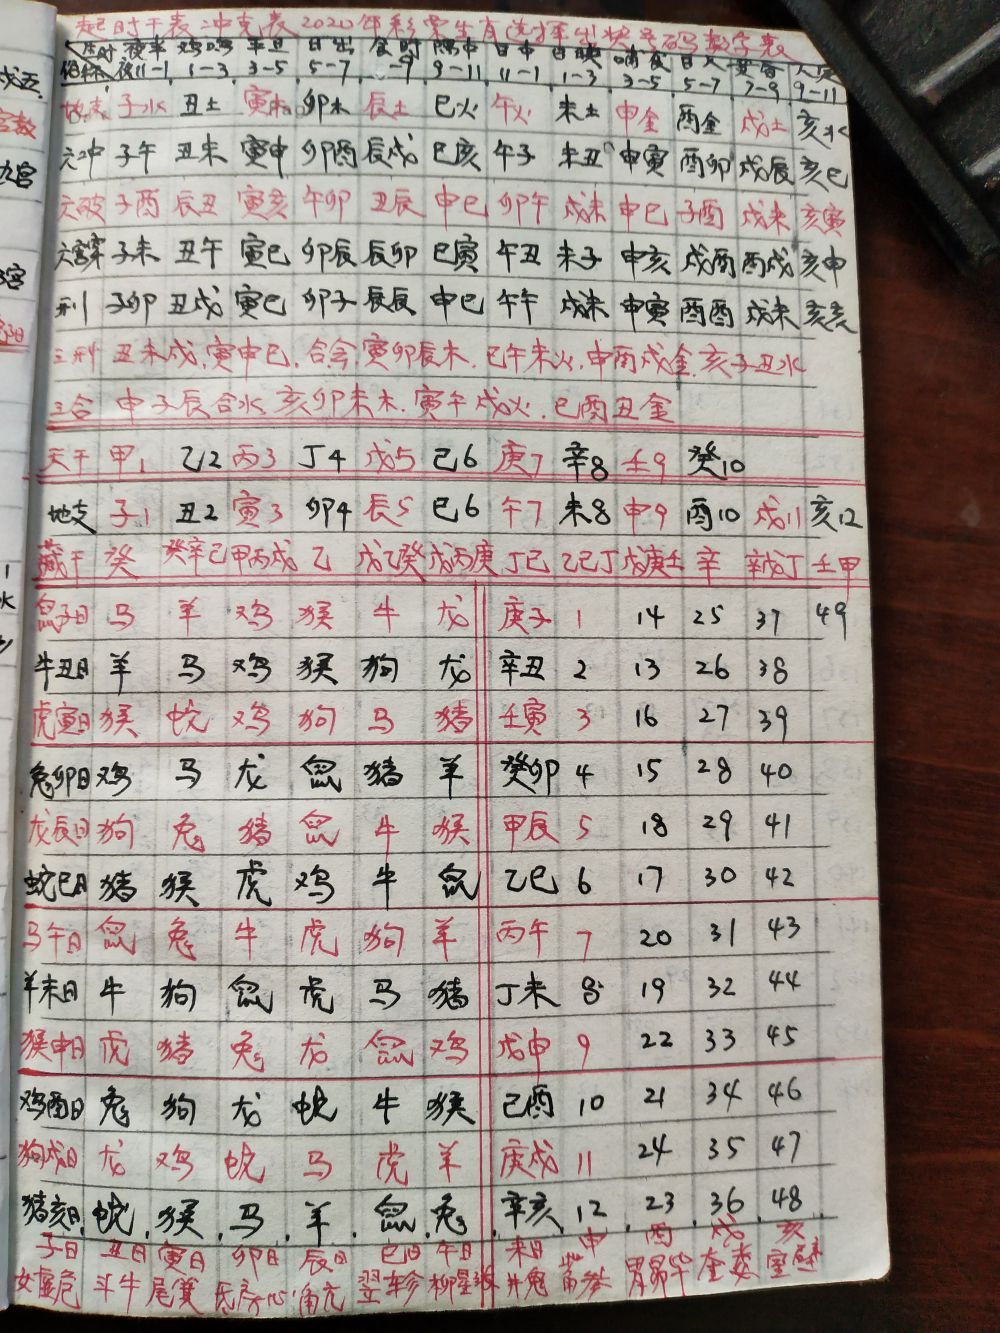 起时干表冲克表2020年彩票生肖选择出状号码数字表
生时 夜半 鸡鸣 平旦 日出 食时 隅中 日中 日昳 哺食 日入 黄昏 人定
夜11-1 1-3 3-5 5-7 -9 9-11 11-1 1-3 3-5 5-7 7-9 9-11
地支 子水 丑土 寅木 卯木 辰土 巳火 午火 未土 申金 酉金 戌土 亥水
六冲 子午 丑未 寅申 卯酉 辰戌 巳亥 午子 未丑 申寅 酉卯 戌辰 亥巳
六破 子酉 辰丑 寅亥 午卯 丑辰 申巳 卯午 戌未 申巳 子酉 戌未 亥寅
六害 子未 丑午 寅巳 卯辰 辰卯 巳寅 午丑 未子 申亥 戌酉 酉戌 亥申
刑 子卯 丑戌 寅巳 卯子 辰辰 申巳 午午 戌未 申寅 酉酉 戌未 亥亥
三刑 丑未戌,寅申巳,合会寅卯辰木.巳午未火,申酉戌金,亥子丑水
三合 申子辰合水,亥卯未木.寅午戌火.巳酉丑金
天干 甲1 乙2 丙3 丁4 戊5 己6 庚7 辛8 壬9 癸10
地支 子1 丑2 寅3 卯4 辰5 巳6 午7 未8 申9 酉10 戌11 亥12
藏干 癸 癸辛己 甲丙戊 乙 戊乙癸 戊丙庚 丁己 乙己丁 戊庚壬 辛 辛戊丁 壬甲
鼠子日 马 羊 鸡 猴 牛 龙 庚子 1 14 25 37 49
牛丑日 羊 马 鸡 猴 狗 龙 辛丑 2 13 26 38
虎寅日 猴 蛇 鸡 狗 马 猪 壬寅 3 16 27 39
兔卯日 鸡 马 龙 鼠 猪 羊 癸卯 4 15 28 40
龙辰日 狗 兔 猪 鼠 牛 猴 甲辰 5 18 29 41
蛇巳日 猪 猴 虎 鸡 牛 鼠 乙巳 6 17 30 42
马午日 鼠 兔 牛 虎 狗 羊 丙午 7 20 31 43
羊未日 牛 狗 鼠 虎 马 猪 丁未 8 19 32 44
猴申日 虎 猪 兔 龙 鼠 鸡 戊申 9 22 33 45
鸡酉日 兔 狗 龙 蛇 牛 猴 己酉 10 21 34 46
狗戌日 龙 鸡 蛇 马 虎 羊 庚戌 11 24 35 47
猪亥日 蛇 猴 马 羊 鼠 兔 辛亥 12 23 36 48
子日 丑日 寅日 卯日 辰日 巳日 午日 未日 申 酉 戌 亥
女虚危 斗牛 尾箕 氐房心 角亢 翌轸 柳星张 井鬼 觜参 胃昴毕 奎娄 室壁